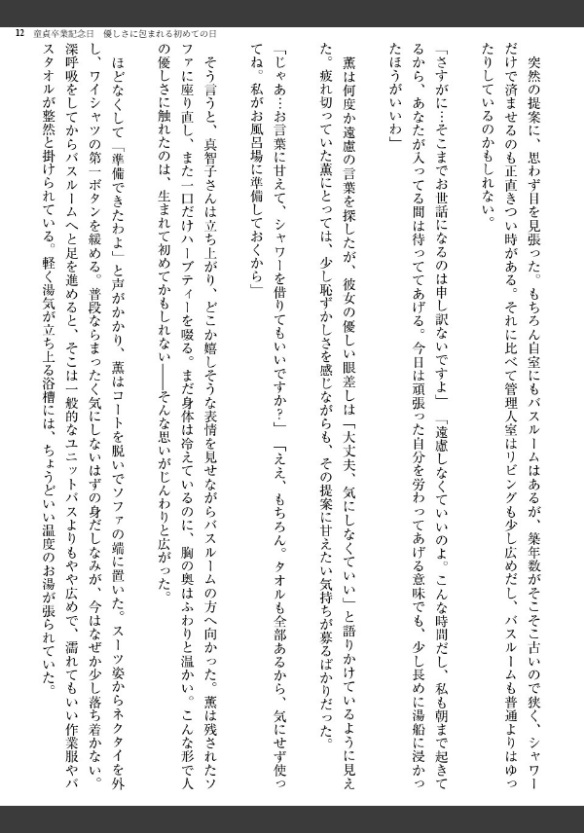 12　童貞卒業記念日　優しさに包まれる初めての日
　突然の提案に、思わず目を見張った。もちろん自室にもバスルームはあるが、築年数がそこそこ古いので狭く、シャワー
だけで済ませるのも正直きつい時がある。それに比べて管理人室はリビングも少し広めだし、バスルームも普通よりはゆっ
たりしているのかもしれない。
「さすがに…そこまでお世話になるのは申し訳ないですよ」「遠慮しなくていいのよ。こんな時間だし、私も朝まで起きて
るから、あなたが入ってる間は待っててあげる。今日は頑張った自分を労わってあげる意味でも、少し長めに湯船に浸かっ
たほうがいいわ」
　薫は何度か遠慮の言葉を探したが、彼女の優しい眼差しは「大丈夫、気にしなくていい」と語りかけているように見え
た。疲れ切っていた薫にとっては、少し恥ずかしさを感じながらも、その提案に甘えたい気持ちが募るばかりだった。
「じゃあ…お言葉に甘えて、シャワーを借りてもいいですか？」「ええ、もちろん。タオルも全部あるから、気にせず使っ
てね。私がお風呂場に準備しておくから」
　そう言うと、真智子さんは立ち上がり、どこか嬉しそうな表情を見せながらバスルームの方へ向かった。薫は残されたソ
ファに座り直し、また一口だけハーブティーを啜る。まだ身体は冷えているのに、胸の奥はふわりと温かい。こんな形で人
の優しさに触れたのは、生まれて初めてかもしれない――そんな思いがじんわりと広がった。
　ほどなくして「準備できたわよ」と声がかかり、薫はコートを脱いでソファの端に置いた。スーツ姿からネクタイを外
し、ワイシャツの第一ボタンを緩める。普段ならまったく気にしないはずの身だしなみが、今はなぜか少し落ち着かない。
深呼吸をしてからバスルームへと足を進めると、そこは一般的なユニットバスよりもやや広めで、濡れてもいい作業服やバ
スタオルが整然と掛けられている。軽く湯気が立ち上る浴槽には、ちょうどいい温度のお湯が張られていた。